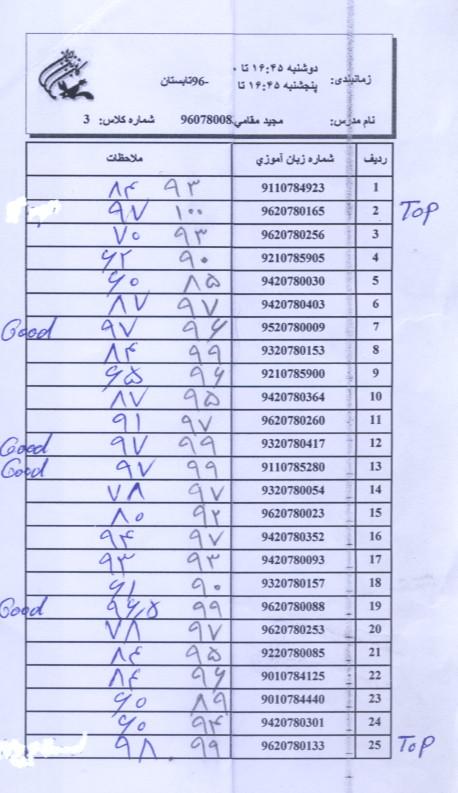 زمانبندی: دوشنبه ۱۶:۴۵ تا ۰ -96تابستان
پنجشنبه ۱۶:۴۵ تا
نام مدرس: مجید مقامی 96078008 شماره کلاس: 3
ردیف شماره زبان آموزي ملاحظات
1 9110784923 ۹۳ ۸۴
2 9620780165 ۱۰۰ ۹۷ Top
3 9620780256 ۹۳ ۷۰
4 9210785905 ۹۰ ۶۲
5 9420780030 ۸۵ ۶۰
6 9420780403 ۹۷ ۸۷
7 9520780009 ۹۶ ۹۷ Good
8 9320780153 ۹۹ ۸۴
9 9210785900 ۹۶ ۶۵
10 9420780364 ۹۵ ۸۷
11 9620780260 ۹۷ ۹۱
12 9320780417 ۹۹ ۹۷ Good
13 9110785280 ۹۹ ۹۷ Good
14 9320780054 ۹۷ ۷۸
15 9620780023 ۹۲ ۸۰
16 9420780352 ۹۷ ۹۴
17 9420780093 ۹۳ ۹۳
18 9320780157 ۹۰ ۶۱
19 9620780088 ۹۹ ۹۶٫۵ Good
20 9620780253 ۹۷ ۷۸
21 9220780085 ۹۵ ۸۴
22 9010784125 ۹۶ ۸۴
23 9010784440 ۸۹ ۶۰
24 9420780301 ۹۴ ۶۰
25 9620780133 ۹۹ ۹۸ Top